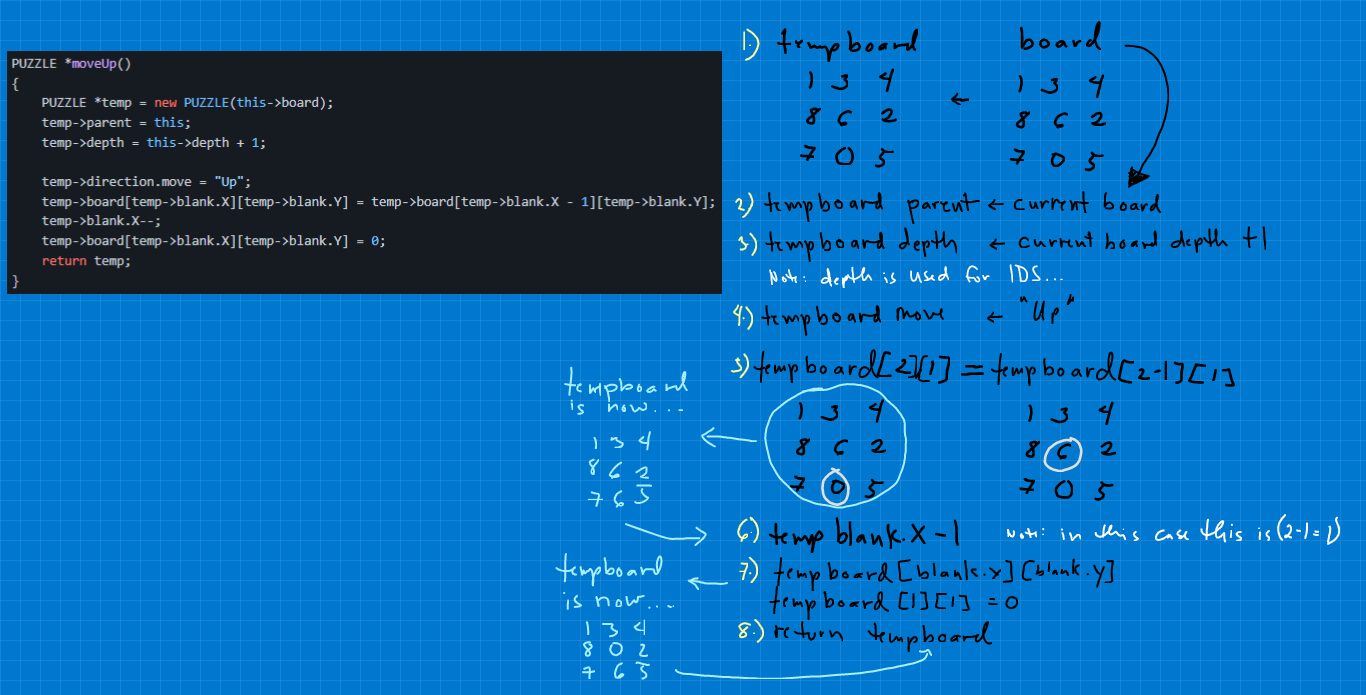 PUZZLE *moveUp()
{
PUZZLE *temp = new PUZZLE(this->board);
temp->parent = this;
temp->depth = this->depth + 1;
temp->direction.move = "Up";
temp->board[temp->blank.X][temp->blank.Y] = temp->board[temp->blank.X - 1][temp->blank.Y];
temp->blank.X--;
temp->board[temp->blank.X][temp->blank.Y] = 0;
return temp;
}
1.) tempboard board
1 3 4 ← 1 3 4
8 6 2 8 6 2
7 0 5 7 0 5
2) tempboard parent ← current board
3) tempboard depth ← current board depth +1
Note: depth is used for IDS...
4.) tempboard move ← "Up"
5) tempboard[2][1] = tempboard[2-1][1]
1 3 4 1 3 4
8 6 2 8 6 2
7 0 5 7 0 5
tempboard
is now...
1 3 4
8 6 2
7 6 5
6.) temp blank.X - 1 Note: in this case this is (2-1=1)
7.) tempboard[blank.x][blank.y]
tempboard [1][1] = 0
tempboard
is now...
1 3 4
8 0 2
7 6 5
8.) return tempboard